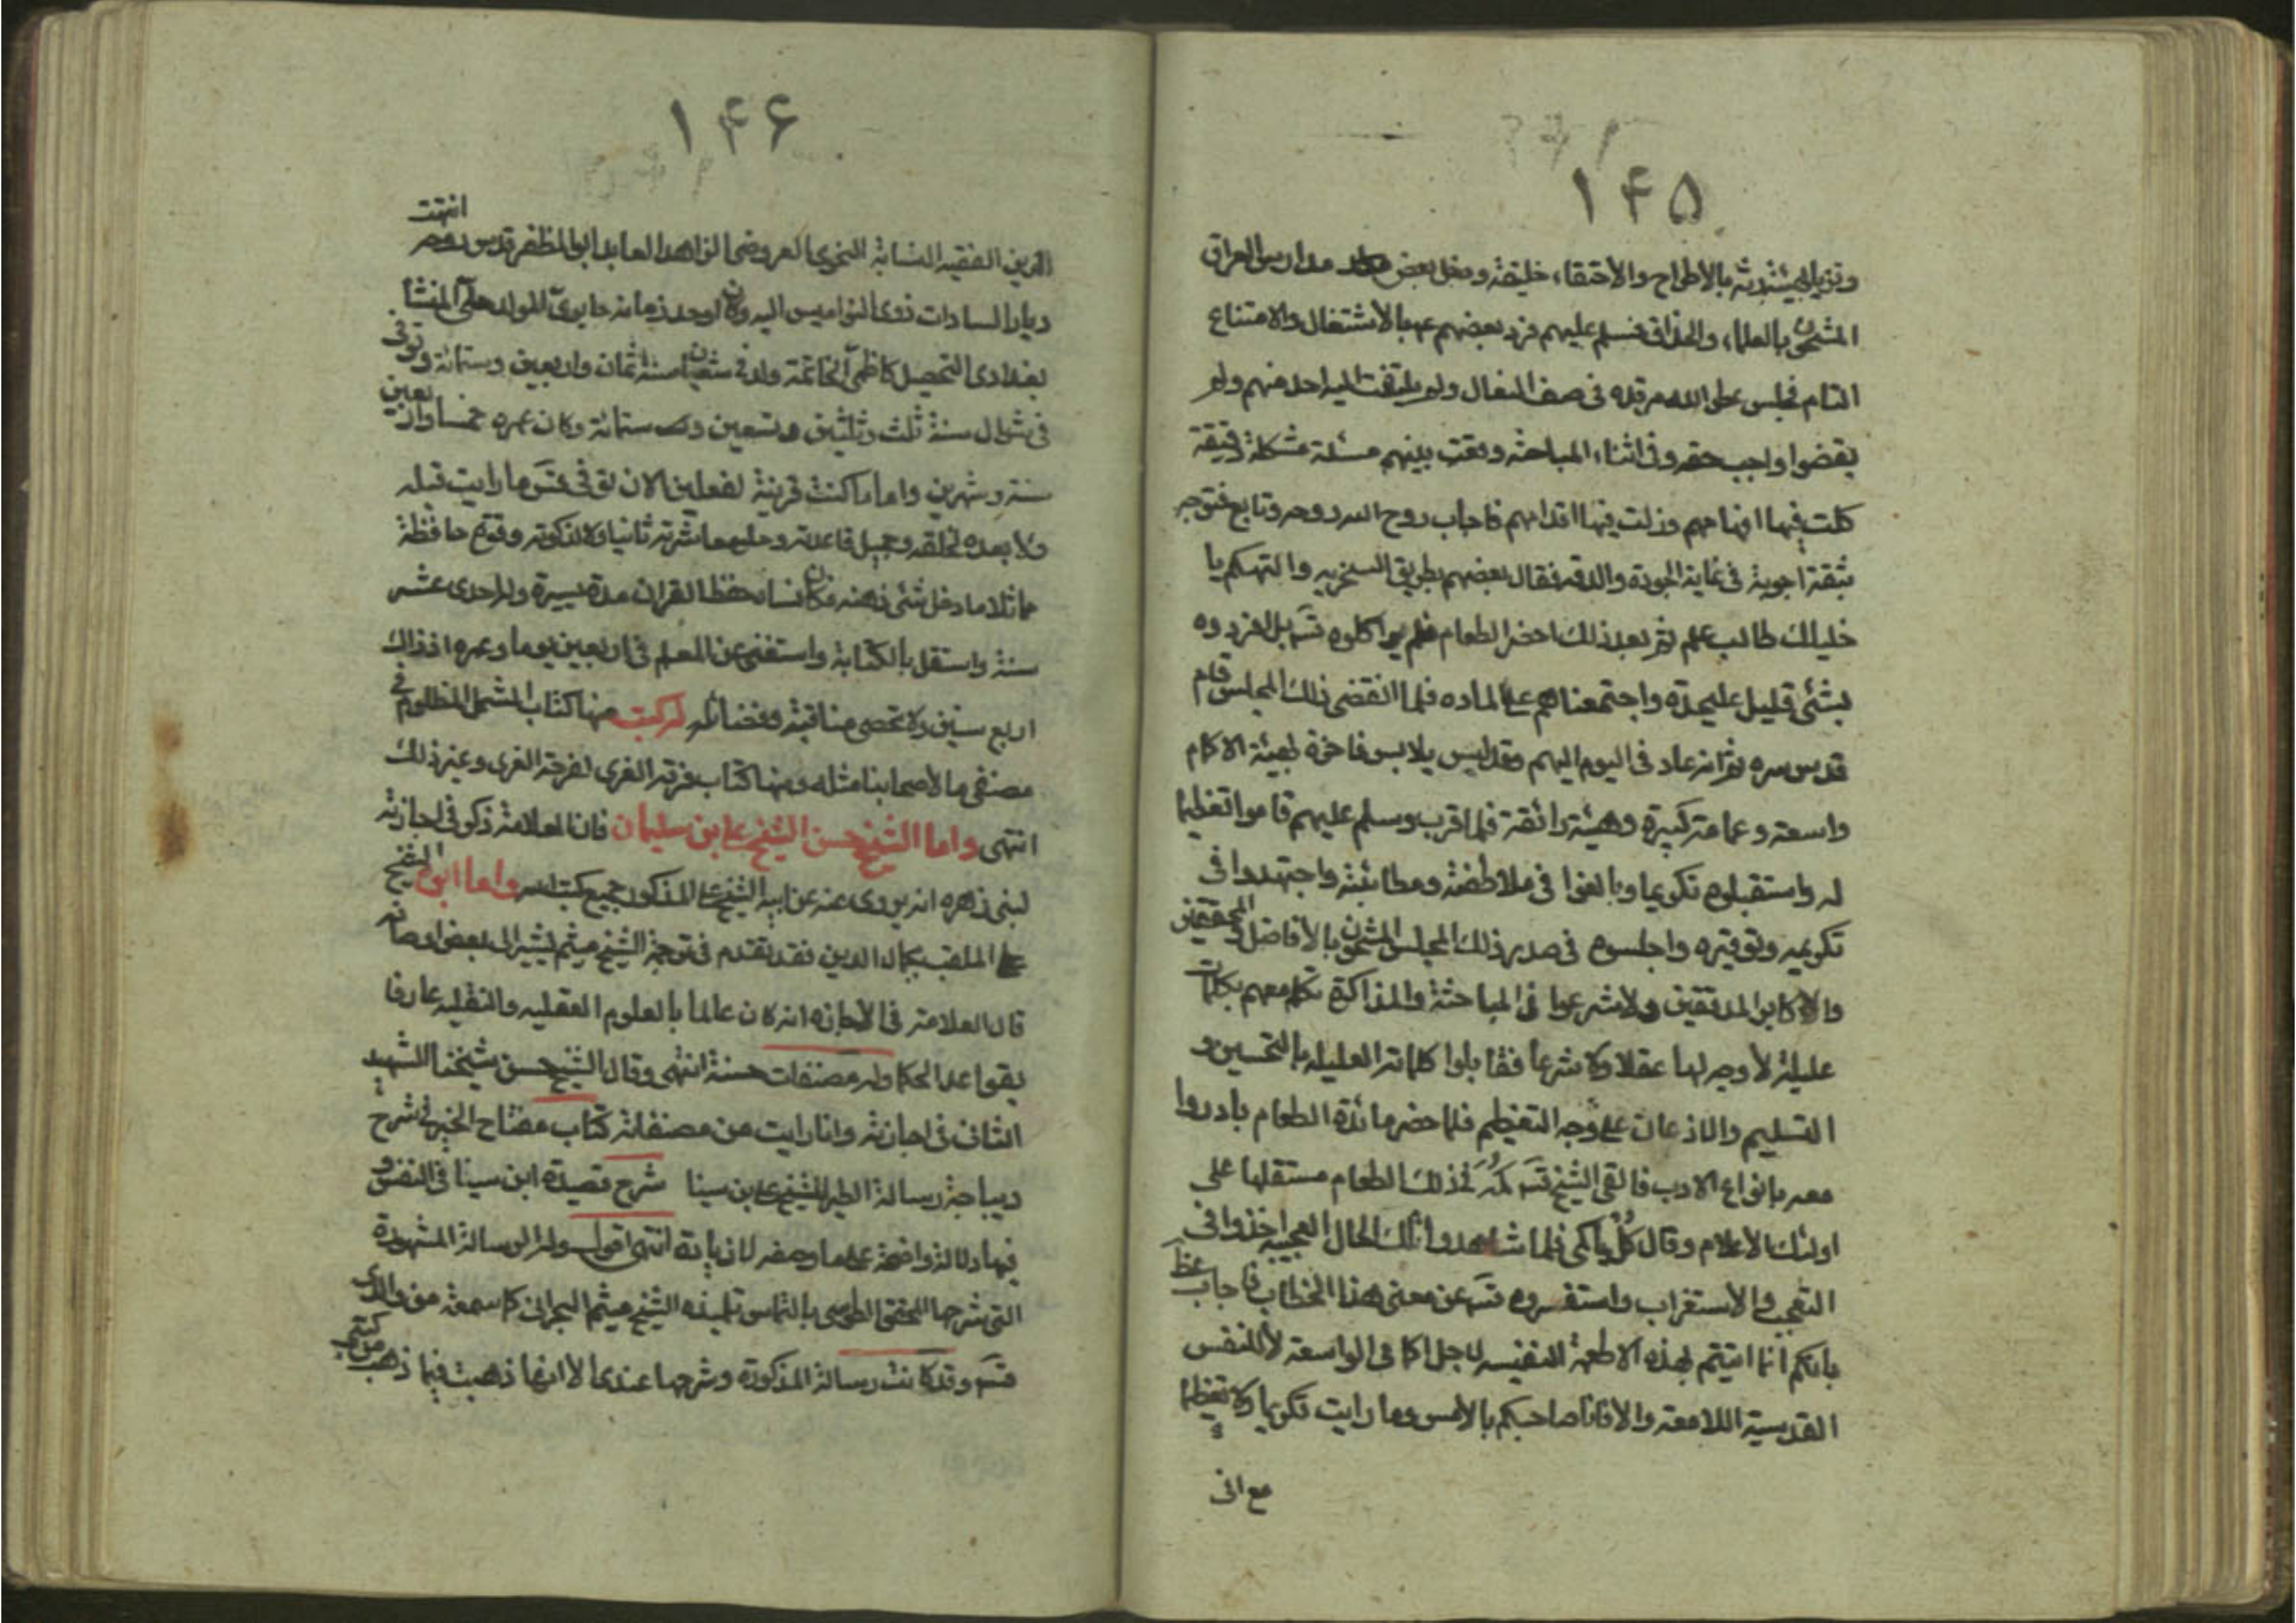 ١۴۵
وتزيا بهيئة رثة بالاطراح والاحتقار، خليقة ودخل بعض مدارس العراق
المشحون بالعلماء والحذاق فسلم عليهم فرد بعضهم عليه بالاشتغال والامتناع
التام فجلس عطر الله مرقده في صف النعال ولم يلتفت اليه احد منهم ولم
يقضوا واجب حقه وفي اثناء المباحثه وقعت بينهم مسئلة مشكلة دقيقة
كلت فيها افهامهم وزلت فيها اقدامهم فاجاب روح الله روحه وتابع فتوحه
بتسعة اجوبة في غاية الجودة والدقه فقال بعضهم بطريق السخريه والتهكم يا
خليلك طالب علم ثم بعد ذلك احضر الطعام فلم يواكلوه قسه بل افردوه
بشئ قليل عليحدة واجتمعوا هم على الماده فلما انقضى ذلك المجلس قام
قدس سره ثم انه عاد في اليوم اليهم وقد لبس ملابس فاخرة بهيئة الاكام
واسعة وعمامة كبيرة وهيئة رائقة فلما قرب وسلم عليهم قاموا تعظيما
له واستقبلوه تكريما وبالغوا في ملاطفته ومطائبته واجتهدوا في
تكريمه وتوقيره واجلسوه في صدر ذلك المجلس المشحون بالافاضل المحققين
والاكابر المدققين ولما شرعوا في المباحثة والمذاكرة تكلم معهم بكلمات
عليلة لا وجه لها عقلا ولا شرعا فقابلوا كلماته العليلة بالتحسين و
التسليم والاذعان على وجه التعظيم فلما حضر مائدة الطعام بادروا
معه بانواع الادب فالقى الشيخ قسه كمه في ذلك الطعام مستقلها على
اولئك الاعلام وقال كل ياكمي فلما شاهدوا تلك الحال العجيبه اخذوا في
التعجب والاستغراب واستفسروه قسه عن معنى هذا الخطاب فاجاب عطر
بانكم انما اتيتم بهذه الاطعمة النفيسه لاجل اكمامي الواسعة لا للنفس
القدسية اللامعة والا فانا صاحبكم بالامس وما رايت تكريما ولا تعظيما
مع اني
١۴۶
انتهت
الدين الفقيه النسابة النحوي العروضي الزاهد العابد ابو المظفر قدس روحه
ديارا السادات ذوي النواميس اليه وكان اوحد زمانه حايري المولد حلي المنشأ
بغدادي التحصيل كاظمي الخاتمة ولد في شعبان سنة ثمان واربعين وستمائة وتوفى
في شوال سنة ثلث وثلثين وتسعين وستمائة وكان عمره خمسا واربعين
سنة وشهرين واياما كنت قرينة لفعلين الان توفى قسه ما رايت قبله
ولا بعده لخلقه وجميل قاعدته وحلو معاشرته ثانيا ولا لذكوته وقوة حافظة
مماثلا ما دخل شئ ذهنه فكان ينساه حفظ القران مدة يسيرة وله احدى عشر
سنة واستقل بالكتابة واستغنى عن المعلم في اربعين يوما وعمره اذ ذاك
اربع سنين ولا تحصى مناقبه وفضائله له كتب منها كتاب الشمل المنظوم في
مصنفي ما لاصحابنا مثله ومنها كتاب فرحة الغري لفرحة الغرى وغير ذلك
انتهى واما الشيخ حسن الشيخ على بن سليمان فان العلامة ذكر في اجازته
لبني زهره انه يروى عنه عن ابيه الشيخ على المذكور جميع كتبه واما ابوه الشيخ
على الملقب بكمال الدين فقد تقدم في ترجمة الشيخ ميثم يشير الى بعض اوصافه
قال العلامة في الاجازه انه كان عالما بالعلوم العقليه والنقليه عارفا
بقواعد الحكما وله مصنفات حسنة انتهى وقال الشيخ حسن شيخنا الشهيد
الثاني في اجازته وانا رايت من مصنفاته كتاب مفتاح الخير في شرح
ديباجة رسالة الطير للشيخ على بن سينا شرح قصيدة ابن سينا في النفس و
فيها دلالة واضحة على ما وصفه لان بايه انتهى اقول وله الرسالة المشهورة
التي شرحها المحقق الطوسي بالتماس تلميذه الشيخ ميثم البحراني كما سمعته من والدي
قسه وقد كانت رسالة المذكورة وشرحها عندي الا انها ذهبت فيما ذهب من كتبي